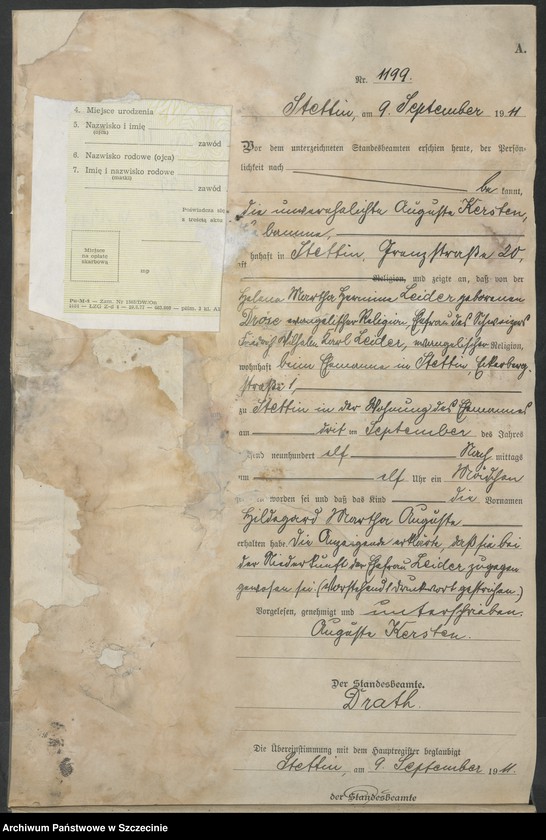 A.
Nr. 1199.
Stettin, am 9. September 1911
4. Miejsce urodzenia
5. Nazwisko i imię
(ojca)
zawód
6. Nazwisko rodowe (ojca)
7. Imię i nazwisko rodowe
(matki)
zawód
Poświadcza się
z treścią aktu
Miejsce
na opłatę
skarbową
my
Pu-M-8
Vor dem unterzeichneten Standesbeamten erschien heute, der Persön-
lichkeit nach be kannt,
die unverehelichte Auguste Kersten,
bamme,
wohnhaft in Stettin, Grenzstraße 20,
Religion, und zeigte an, daß von der
Helene Martha Hermine Leider geborenen
Dröse evangelischer Religion Ehefrau des Schweizers
Friedrich Wilhelm Karl Leider, evangelischer Religion,
wohnhaft beim Ehemanne in Stettin, Eckerberg-
straße 1
zu Stettin in der Wohnung des Ehemannes
am drit ten September des Jahres
tausend neunhundert elf Nach mittags
um elf Uhr ein Mädchen
geboren worden sei und daß das Kind die Vornamen
Hildegard Martha Auguste
erhalten habe. Die Anzeigende erklärte, daß sie bei
der Niederkunft der Ehefrau Leider zugegen
gewesen sei. (Vorstehend 1 Druckwort gestrichen.)
Vorgelesen, genehmigt und unterschrieben.
Auguste Kersten.
Der Standesbeamte.
Drath.
Die Übereinstimmung mit dem Hauptregister beglaubigt
Stettin, am 9. September 1911.
der Standesbeamte
Archiwum Państwowe w Szczecinie